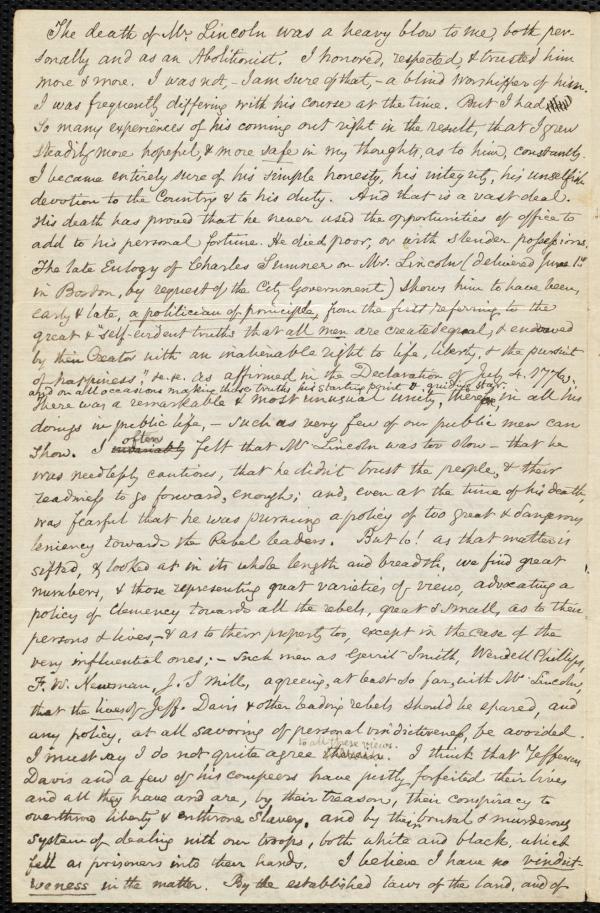 The death of Mr. Lincoln was a heavy blow to me, both per-
sonally and as an Abolitionist. I honored, respected, & trusted him
more & more. I was not, - I am sure of that, - a blind worshipper of him.
I was frequently differing with his course at the time. But I had
so many experiences of his coming out right in the result, that I grew
steadily more hopeful, & more safe in my thoughts, as to him, constantly.
I became entirely sure of his simple honesty, his integrity, his unselfish
devotion to the Country & to his duty. And that is a vast deal.
His death has proved that he never used the opportunities of office to
add to his personal fortune. He died poor, or with slender possessions.
The late Eulogy of Charles Sumner on Mr. Lincoln (delivered June 1st
in Boston, by request of the City Government) shows him to have been,
early & late, a politician of principle, from the first referring to the
great & "self-evident truths that all men are created equal, & endowed
by their Creator with an inalienable right to life, liberty, & the pursuit
of happiness," &c. &c. as affirmed in the Declaration of July 4. 1776;
and on all occasions making those truths his starting point & guiding star.
There was a remarkable & most unusual unity, therefore, in all his
doings in public life, - such as very few of our public men can
show. I invariably often felt that Mr Lincoln was too slow - that he
was needlessly cautious, that he didn't trust the people, & their
readiness to go forward, enough; and, even at the time of his death,
was fearful that he was pursuing a policy of too great & dangerous
leniency towards the Rebel leaders. But lo! as that matter is
sifted, & looked at in its whole length and breadth, we find great
numbers, & those representing great varieties of views, advocating a
policy of clemency towards all the rebels, great & small, as to their
persons & lives, - & as to their property too, except in the case of the
very influential ones; - such men as Gerrit Smith, Wendell Phillips,
F. W. Newman, J. S Mill, agreeing, at least so far, with Mr Lincoln,
that the lives of Jeff. Davis & other leading rebels should be spared, and
any policy, at all savoring of personal vindictiveness, be avoided.
to all these views.
I must say I do not quite agree therein. I think that Jefferson
Davis and a few of his compeers have justly forfeited their lives
and all they have and are, by their treason, their conspiracy to
overthrow liberty & enthrone Slavery, and by their brutal & murderous
system of dealing with our troops, both white and black, which
fell as prisoners into their hands. I believe I have no vindict-
iveness in the matter. By the established laws of the land, and of